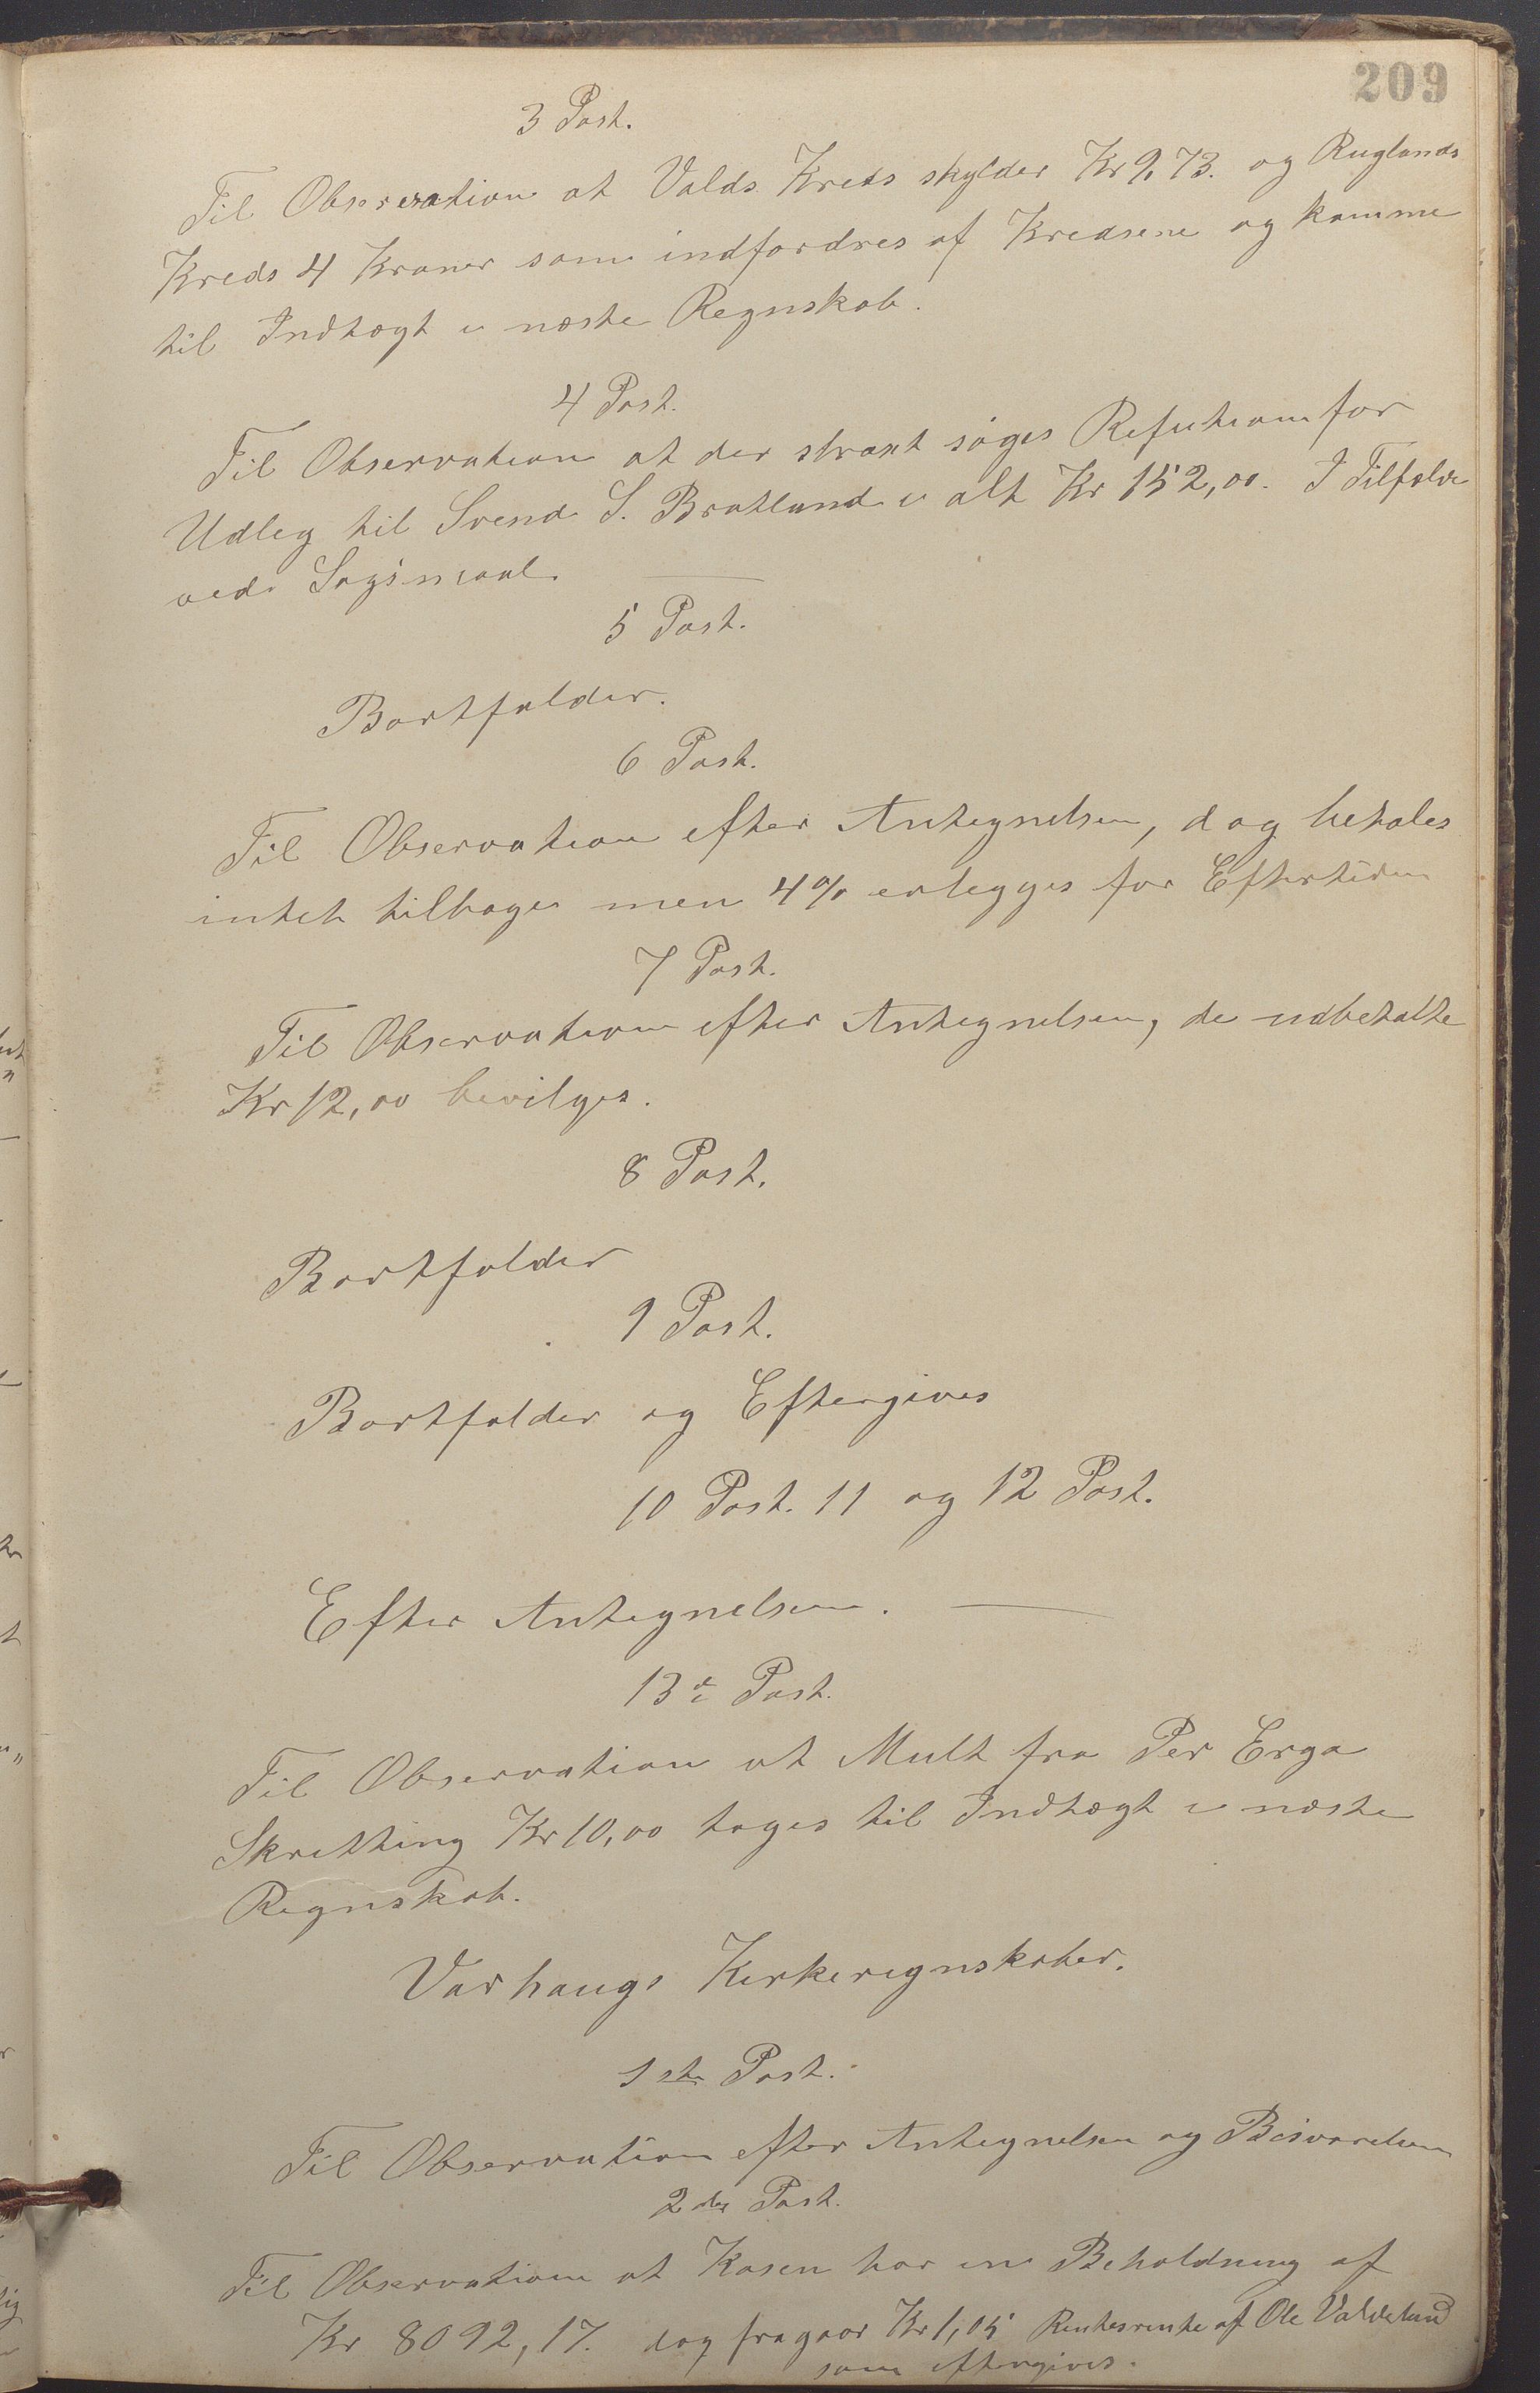 209
3 Post.
Til Observation at Valds Kreds skylder Kr 9,73. og Ruglands
Kreds 4 Kroner som indfordres af Kredsene og komme
til Indtægt i næste Regnskab.
4 Post.
Til Observation at der straxt søges Refution for
Udleg til Svend S. Bratland i alt Kr 152,00. I Tilfælde
ved Sogsmaal.
5 Post.
Bortfalder.
6 Post.
Til Observation efter Antegnelsen, dog betales
intet tilbage men 4% erlegges for Eftertiden
7 Post.
Til Observation efter Antegnelsen, de udbetalte
Kr 12,00 bevilges.
8 Post.
Bortfalder
9 Post.
Bortfalder og Eftergives
10 Post. 11 og 12 Post.
Efter Antegnelsen.
13de Post.
Til Observation at Mult fra Per Erga
Skretting Kr 10,00 tages til Indtægt i næste
Regnskab.
Varhaugs Kirkeregnskaber.
1ste Post.
Til Observation efter Antegnelsen og Besvarelsen
2den Post.
Til Observation at Kasen har en Beholdning af
Kr 8092,17. dog fragaar Kr 1,05 Rentesrente af Ole Valdeland
som eftergives.